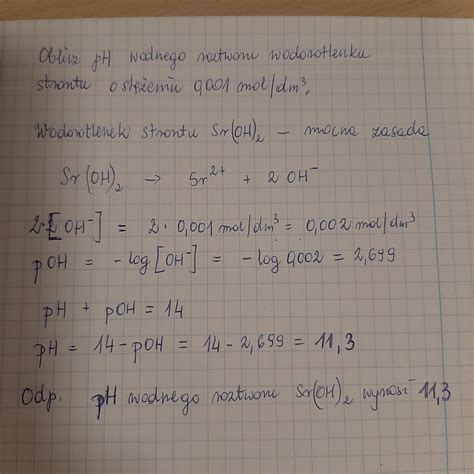 Oblicz pH wodnego roztworu wodorotlenku
strontu o stężeniu 0,001 mol/dm³.
Wodorotlenek strontu Sr(OH)₂ – mocna zasada
Sr(OH)₂ → Sr²⁺ + 2 OH⁻
[OH⁻] = 2 · 0,001 mol/dm³ = 0,002 mol/dm³
pOH = -log[OH⁻] = -log 0,002 = 2,699
pH + pOH = 14
pH = 14 - pOH = 14 - 2,699 = 11,3
Odp. pH wodnego roztworu Sr(OH)₂ wynosi 11,3